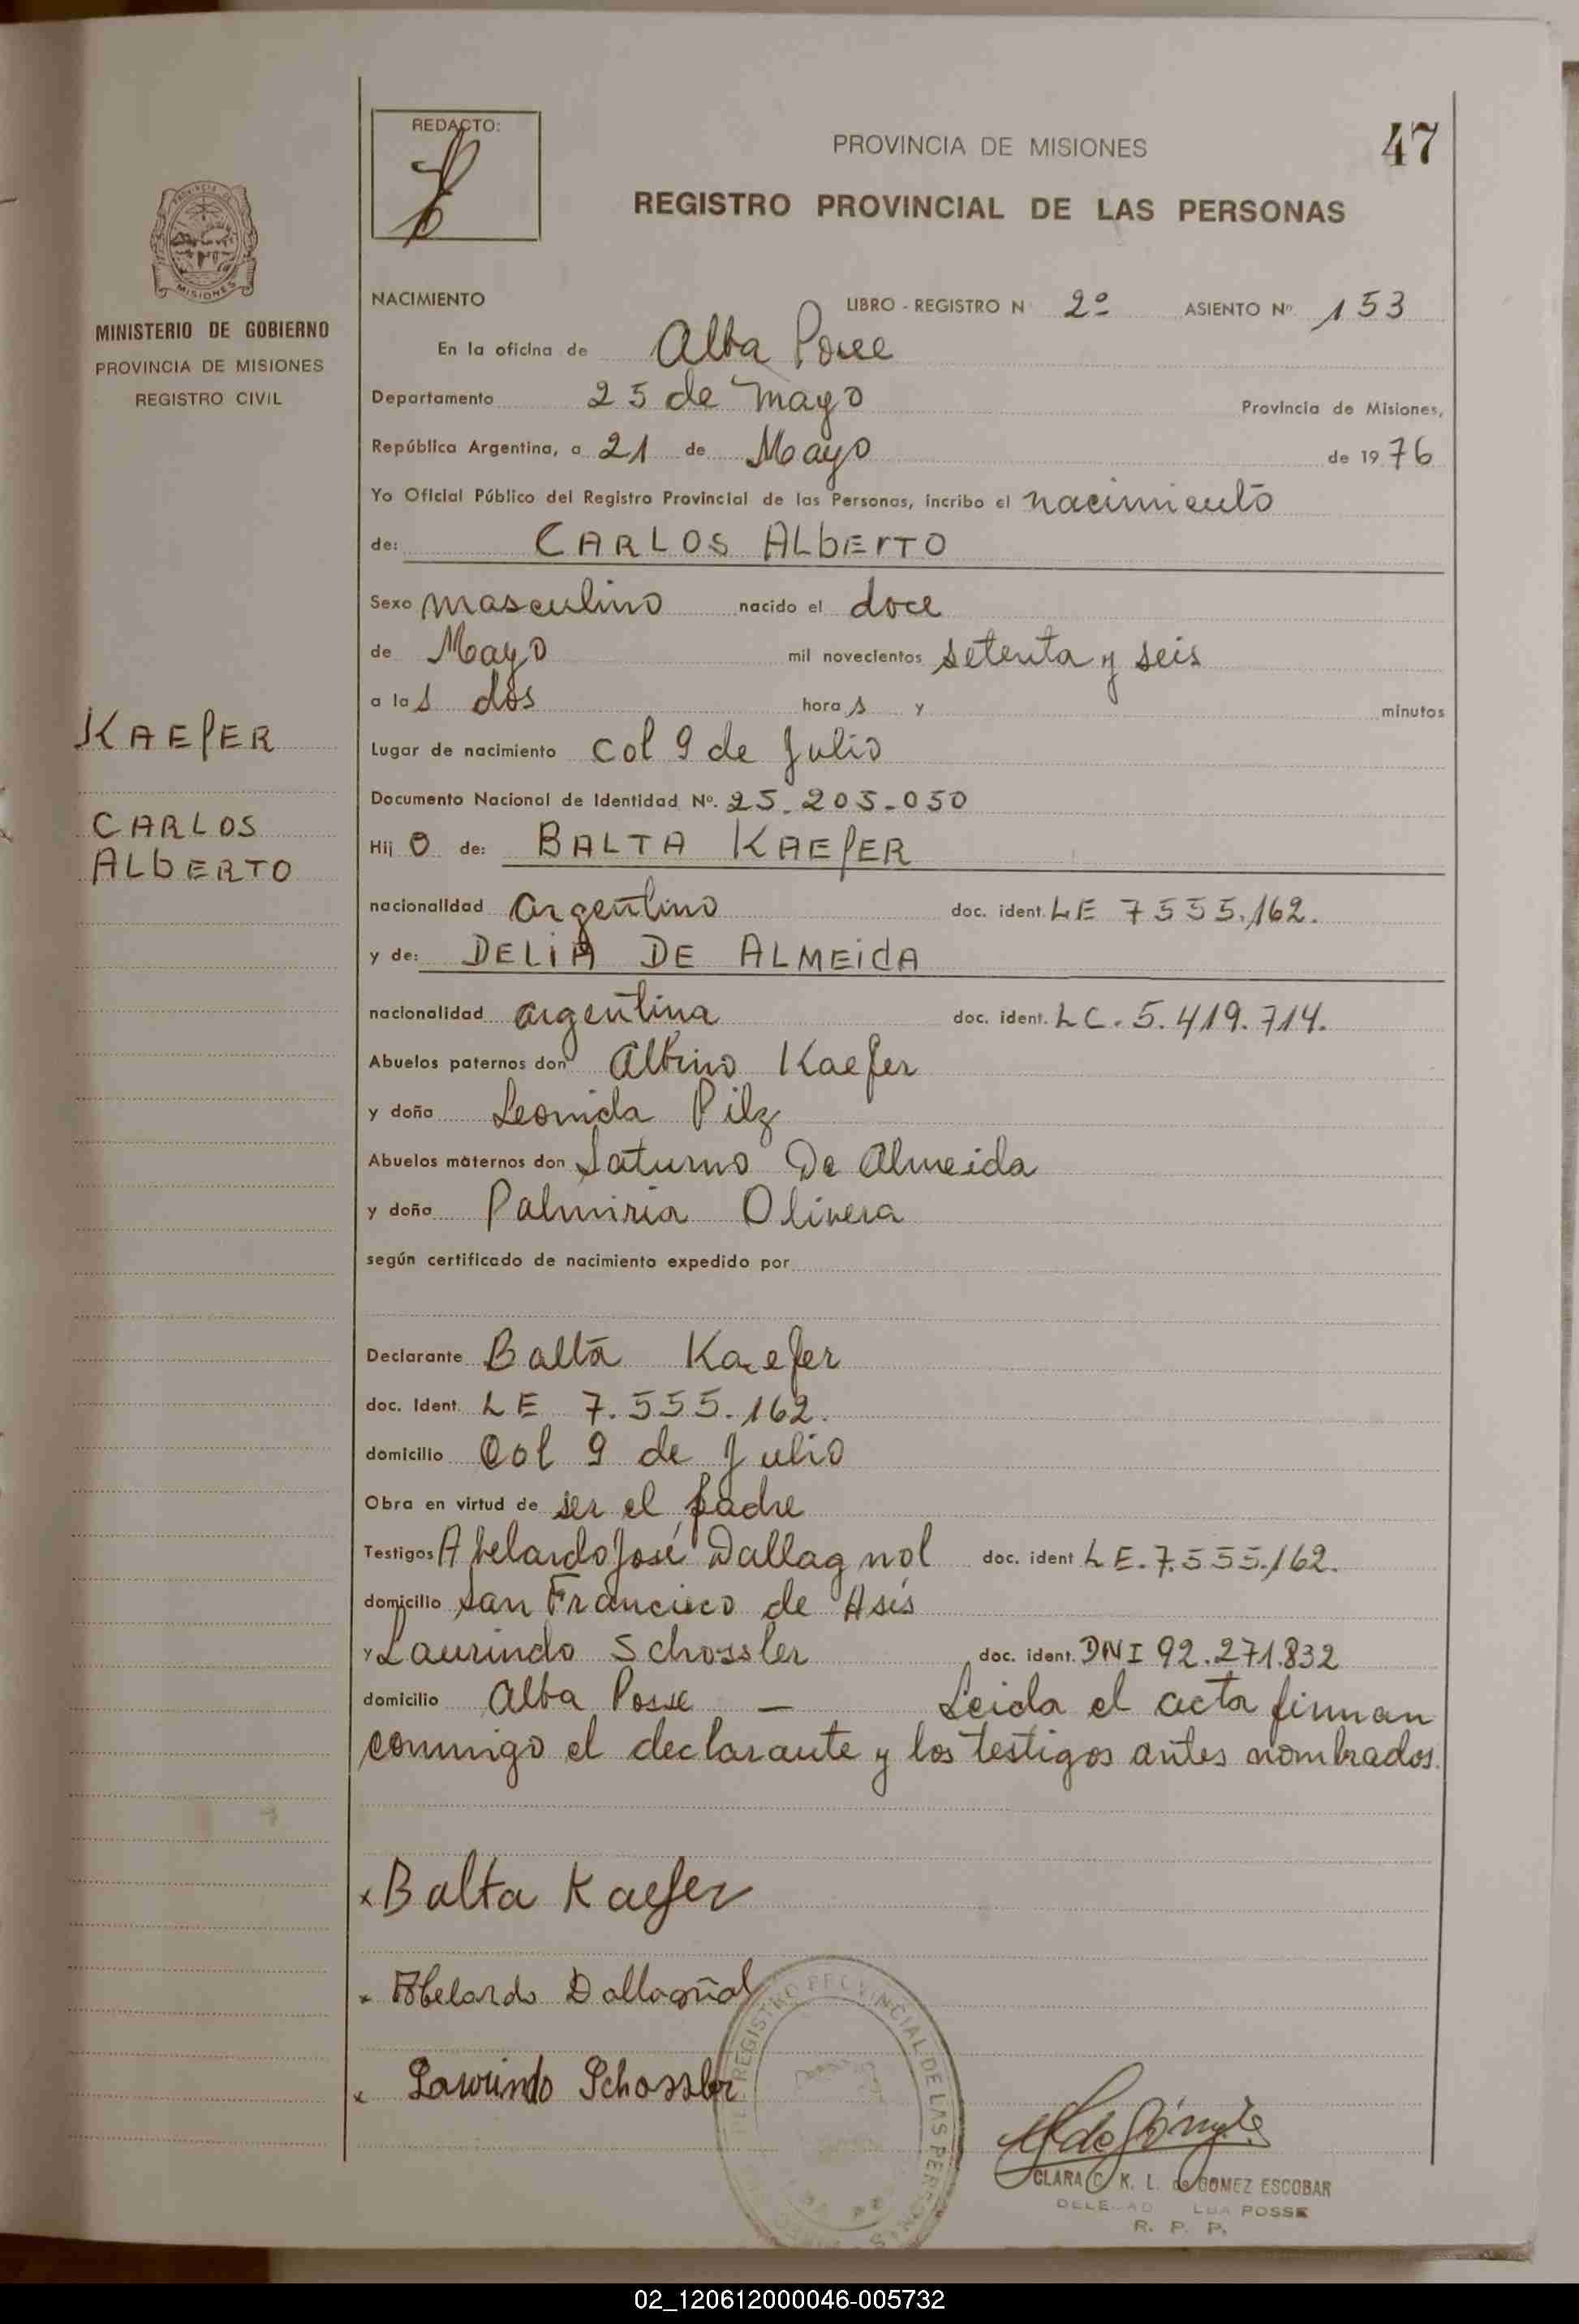 47
REDACTO:
PROVINCIA DE MISIONES
REGISTRO PROVINCIAL DE LAS PERSONAS
MISIONES
MINISTERIO DE GOBIERNO
PROVINCIA DE MISIONES
REGISTRO CIVIL
KAEfER
CARLOS
ALbERTO
NACIMIENTO LIBRO - REGISTRO N 2º ASIENTO Nº 153
En la oficina de Alba Posse
Departamento 25 de Mayo Provincia de Misiones,
República Argentina, a 21 de Mayo de 1976
Yo Oficial Público del Registro Provincial de las Personas, incribo el nacimiento
de: CARLOS ALbErTO
Sexo masculino nacido el doce
de Mayo mil novecientos setenta y seis
a las dos horas y minutos
Lugar de nacimiento Col 9 de Julio
Documento Nacional de Identidad Nº. 25.205.050
Hijo de: BALTA KAEfER
nacionalidad argentino doc. ident. LE 7555.162.
y de: DELiA DE ALMEidA
nacionalidad argentina doc. ident. LC. 5.419.714.
Abuelos paternos don Albino Kaefer
y doña Leonida Pilz
Abuelos maternos don Saturno De Almeida
y doña Palmiria Olivera
según certificado de nacimiento expedido por
Declarante Balta Kaefer
doc. Ident. LE 7.555.162.
domicilio Col 9 de Julio
Obra en virtud de ser el padre
Testigos Abelardo José Dallagnol doc. ident LE. 7.555.162.
domicilio San Francisco de Asís
y Laurindo Schossler doc. ident. DNI 92.271.832
domicilio Alba Posse — Leida el acta firman
conmigo el declarante y los testigos antes nombrados.
x Balta Kaefer
x Abelardo Dallagñol
x Laurindo Schossler
REGISTRO PROVINCIAL DE LAS PERSONAS
CLARA C. K. L. de GOMEZ ESCOBAR
POSSE
R. P. P.
02_120612000046-005732